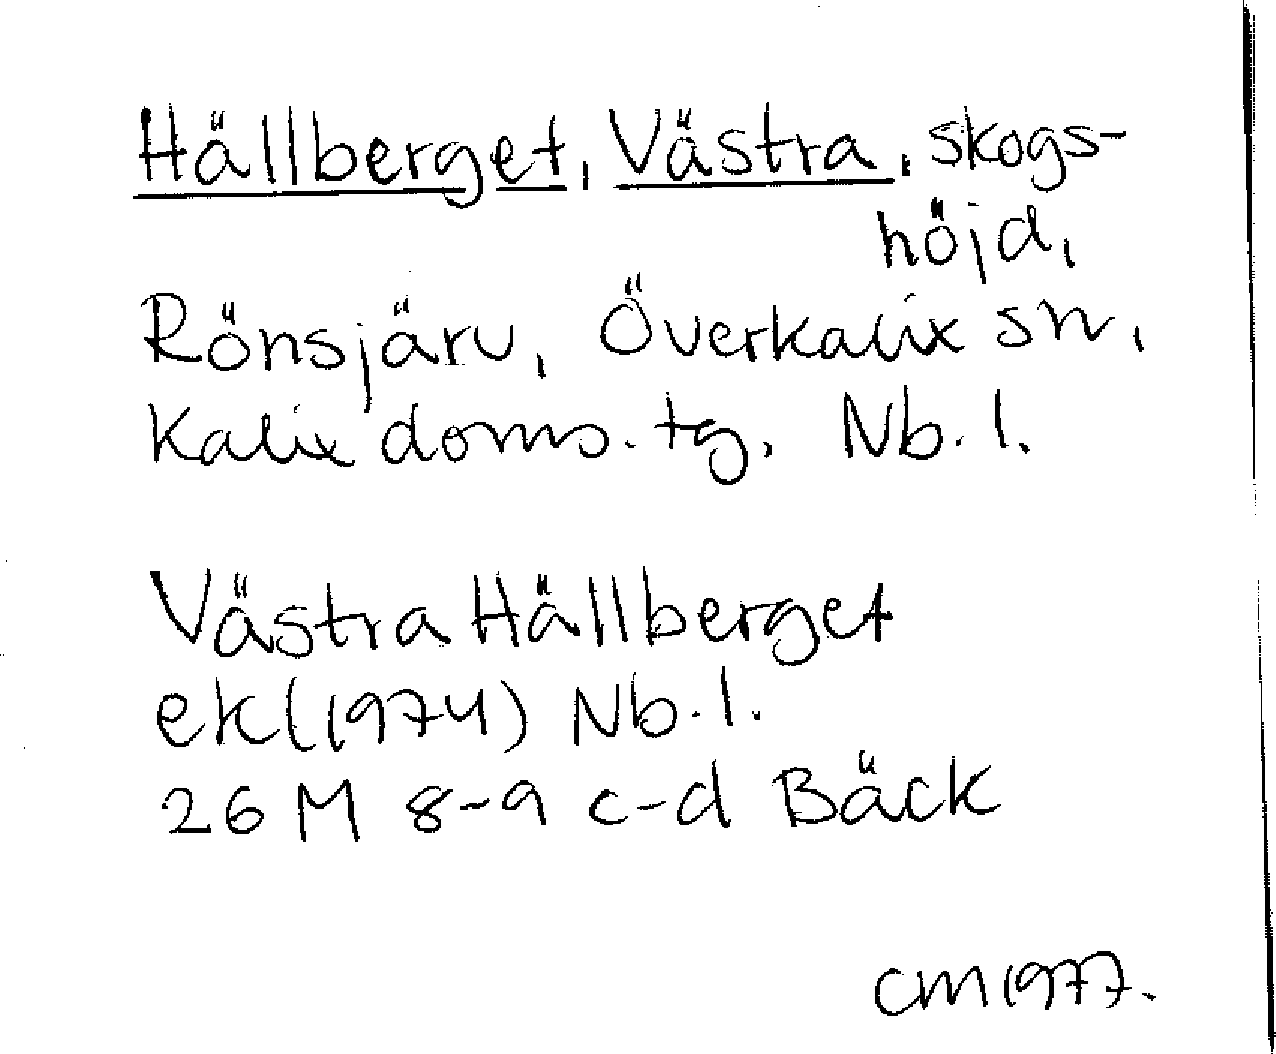 Hällberget, Västra, skogs-
höjd,
Rönsjärv, Överkalix sn,
Kalix doms. tg. Nb. l.
Västra Hällberget
ek (1974) Nb. l.
26 M 8-9 c-d Bäck
CM 1977.